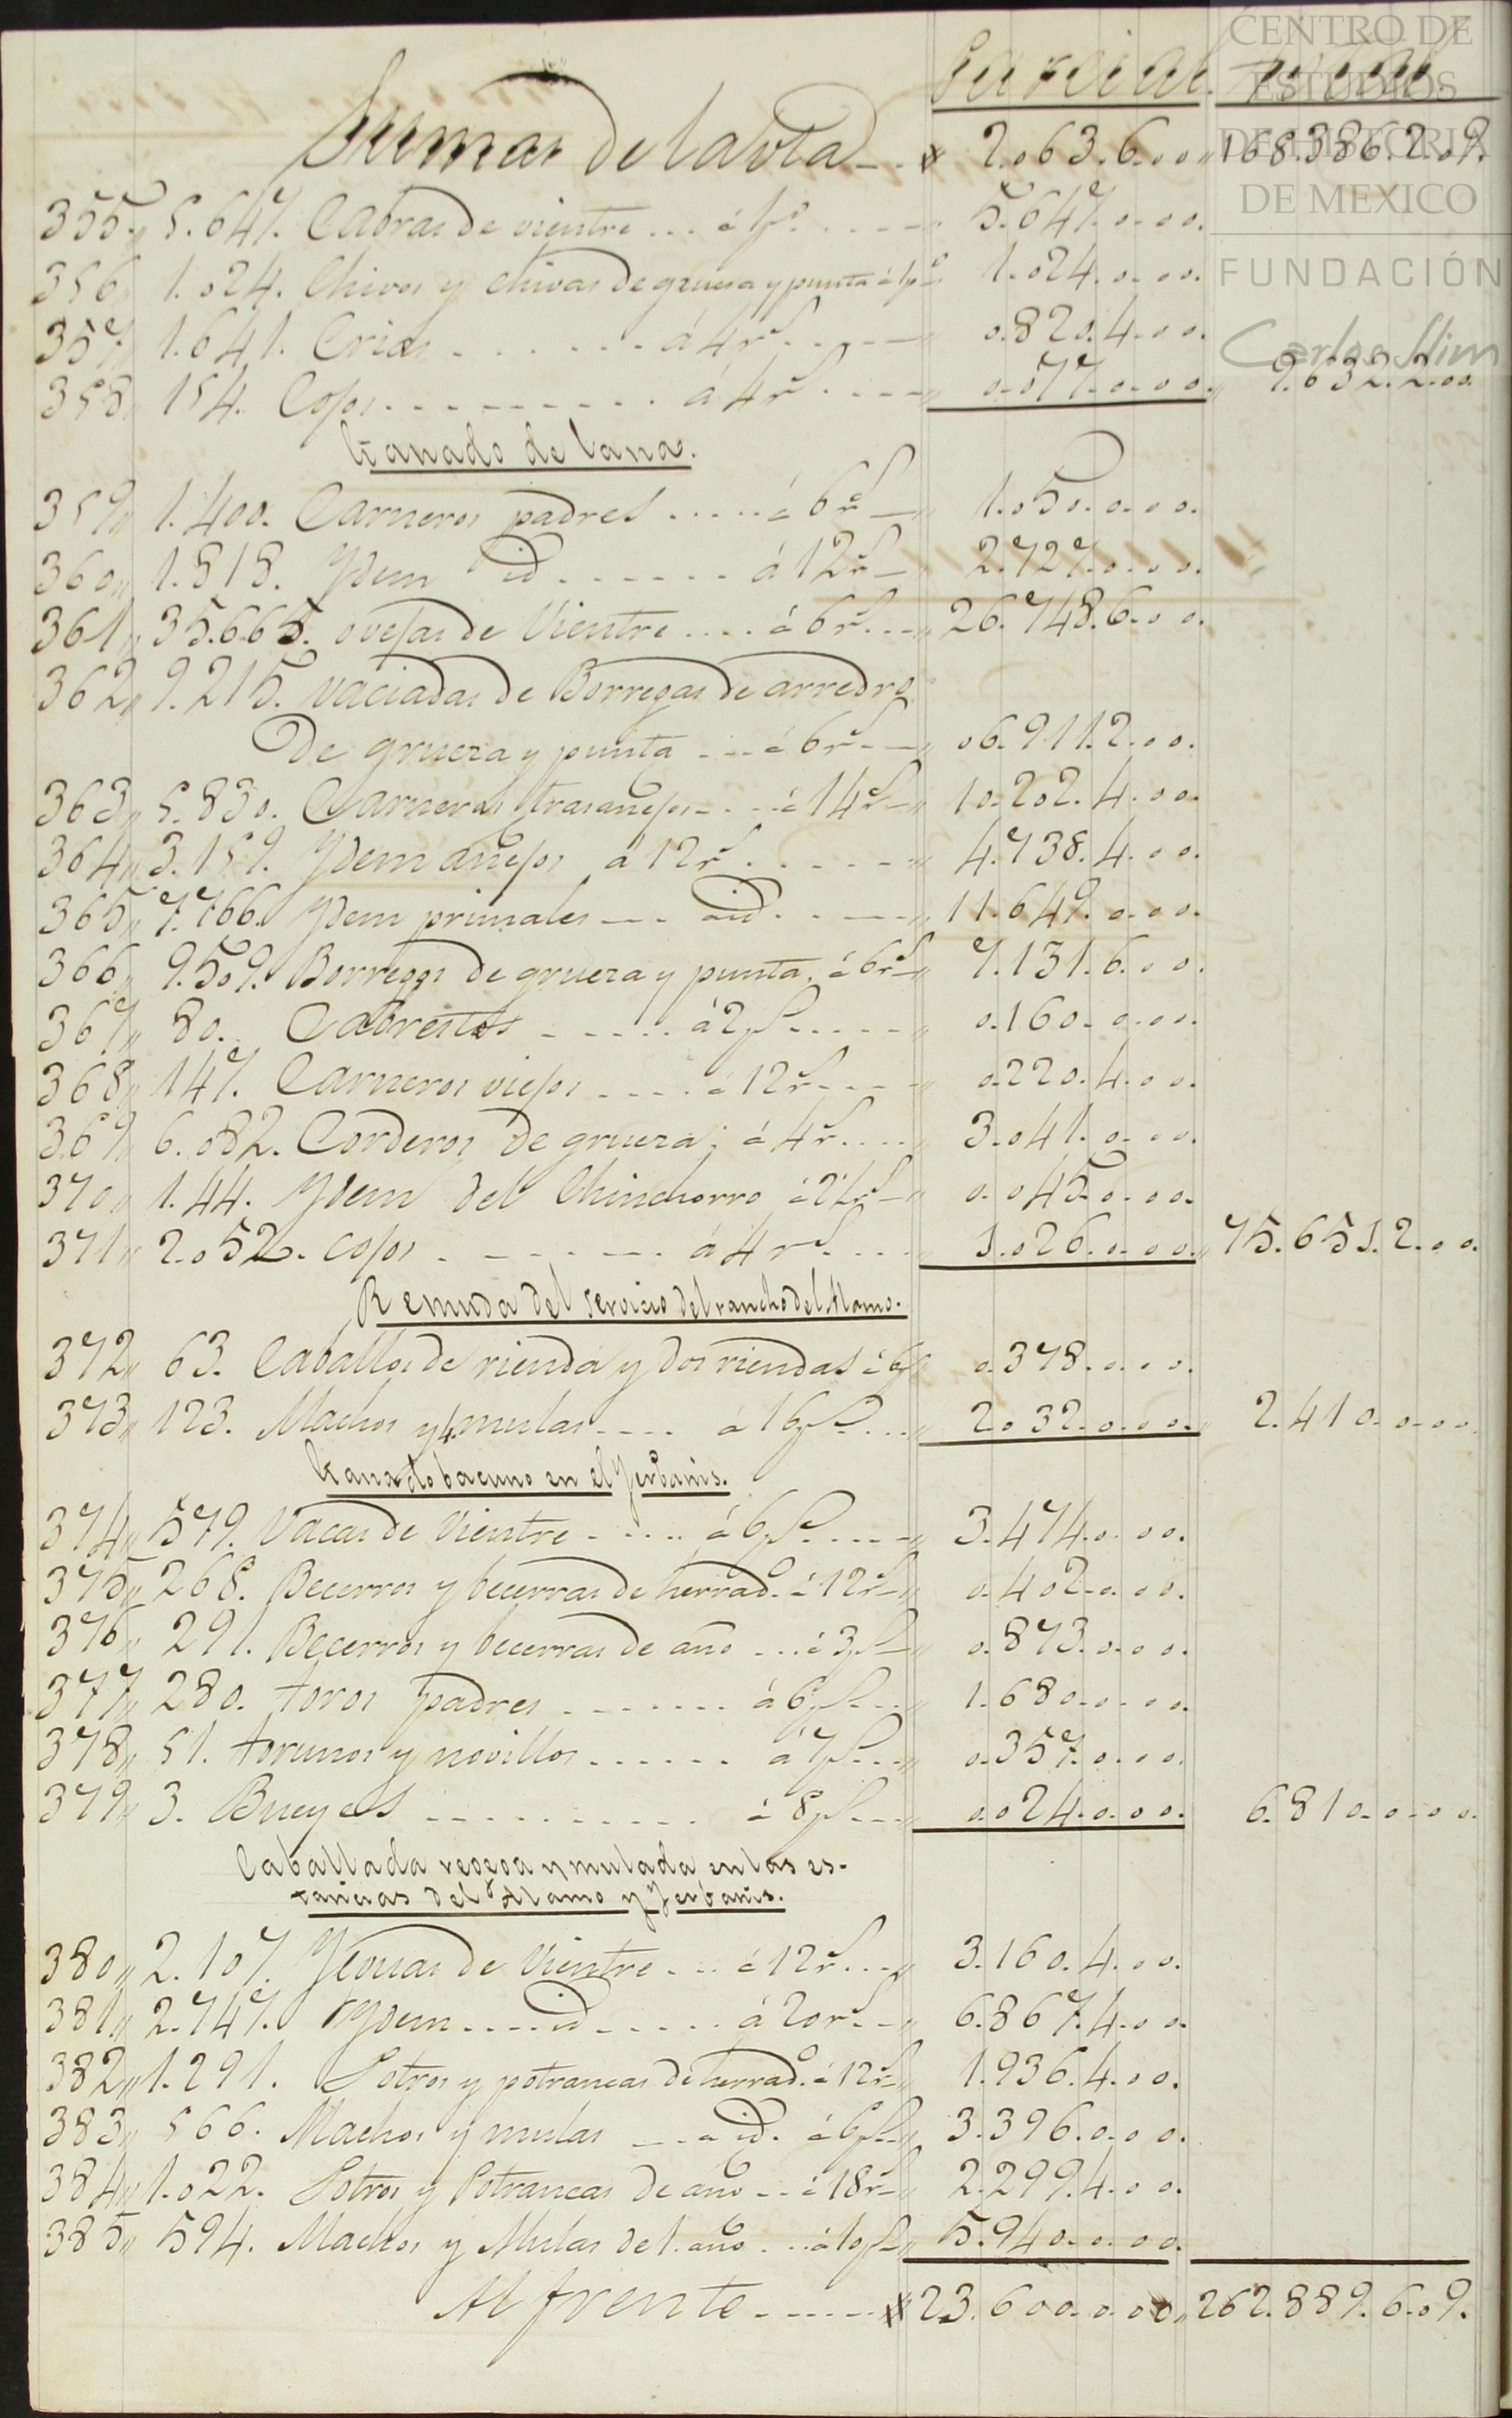 Parcial. Total.
Sumas de la vta... $ 2.063.6.00 168.386.2.09.
355. 5.647. Cabras de vientre... á 1 p.s .... 5.647.0.00.
356 1.024. Chivos y chivas de grueza y punta á 1 p.o 1.024.0.00.
357 1.641. Crias ....... á 4 r.s ..... 0.820.4.00.
358 154. Cojos ......... a 4 r.s .... 0.077.0.00. 9.632.2.00.
Ganado de lana.
359 1.400. Carneros padres ..... á 6 r.s 1.050.0.00.
360 1.818. Ydem id ....... á 12 r.s 2.727.0.00.
361 35.665. ovejas de Vientre .... á 6 r.s ... 26.748.6.00.
362 9.215. vaciadas de Borregas de arredro
de grueza y punta ... á 6 r.s 06.911.2.00.
363 5.830. Carneros trasanejos .... á 14 r.s 10.202.4.00.
364 3.159. Ydem añejos á 12 r.s ...... 4.738.4.00.
365 7.766. Ydem primales --- id. .--- 11.649.0.00.
366 9.509. Borregos de grueza y punta. á 6 r.s 7.131.6.00.
367 80. Cabrestos ...... á 2 p.s ..... 0.160.0.00.
368 147. Carneros viejos ..... á 12 r.s .... 0.220.4.00.
369 6.082. Corderos de grueza; á 4 r.s .... 3.041.0.00.
370 1.44. Ydem del Chinchorro á 2½ r.s 0.045.0.00.
371 2.052. cojos ....... á 4 r.s .... 1.026.0.00. 75.651.2.00.
Remuda del servicio del rancho del Alamo.
372 63. Caballos de rienda y dos riendas á 6 p.s 0.378.0.00.
373 123. Machos y 4 mulas .... á 16 p.s ... 2.032.0.00. 2.410.0.00.
Ganado bacuno en el Yerbanis.
374 579. Vacas de Vientre ..... á 6 p.s .... 3.474.0.00.
375 268. Becerros y becerras de herrad.o á 12 r.s 0.402.0.00.
376 291. Becerros y becerras de año ... á 3 p.s 0.873.0.00.
377 280. toros padres ....... á 6 p.s ... 1.680.0.00.
378 51. torunos y novillos ...... á 7 p.s ... 0.357.0.00.
379 3. Bueyes .......... á 8 p.s ... 0.024.0.00. 6.810.0.00.
Caballada y mulada en las es-
tancias del Alamo y Yerbanis.
380 2.107. Yeguas de Vientre ... á 12 r.s ... 3.160.4.00.
381 2.747. Ydem .... id ..... á 20 r.s .. 6.867.4.00.
382 1.291. Potros y potrancas de herrad.o á 12 r.s 1.936.4.00.
383 566. Machos y mulas --- id. á 6 p.s 3.396.0.00.
384 1.022. Potros y Potrancas de año .. á 18 r.s 2.299.4.00.
385 594. Machos y Mulas de 1. año ... á 10 p.s 5.940.0.00.
Al frente ...... $ 23.600.0.00 262.889.6.09.
CENTRO DE
ESTUDIOS
DE HISTORIA
DE MEXICO
FUNDACIÓN
Carlos Slim